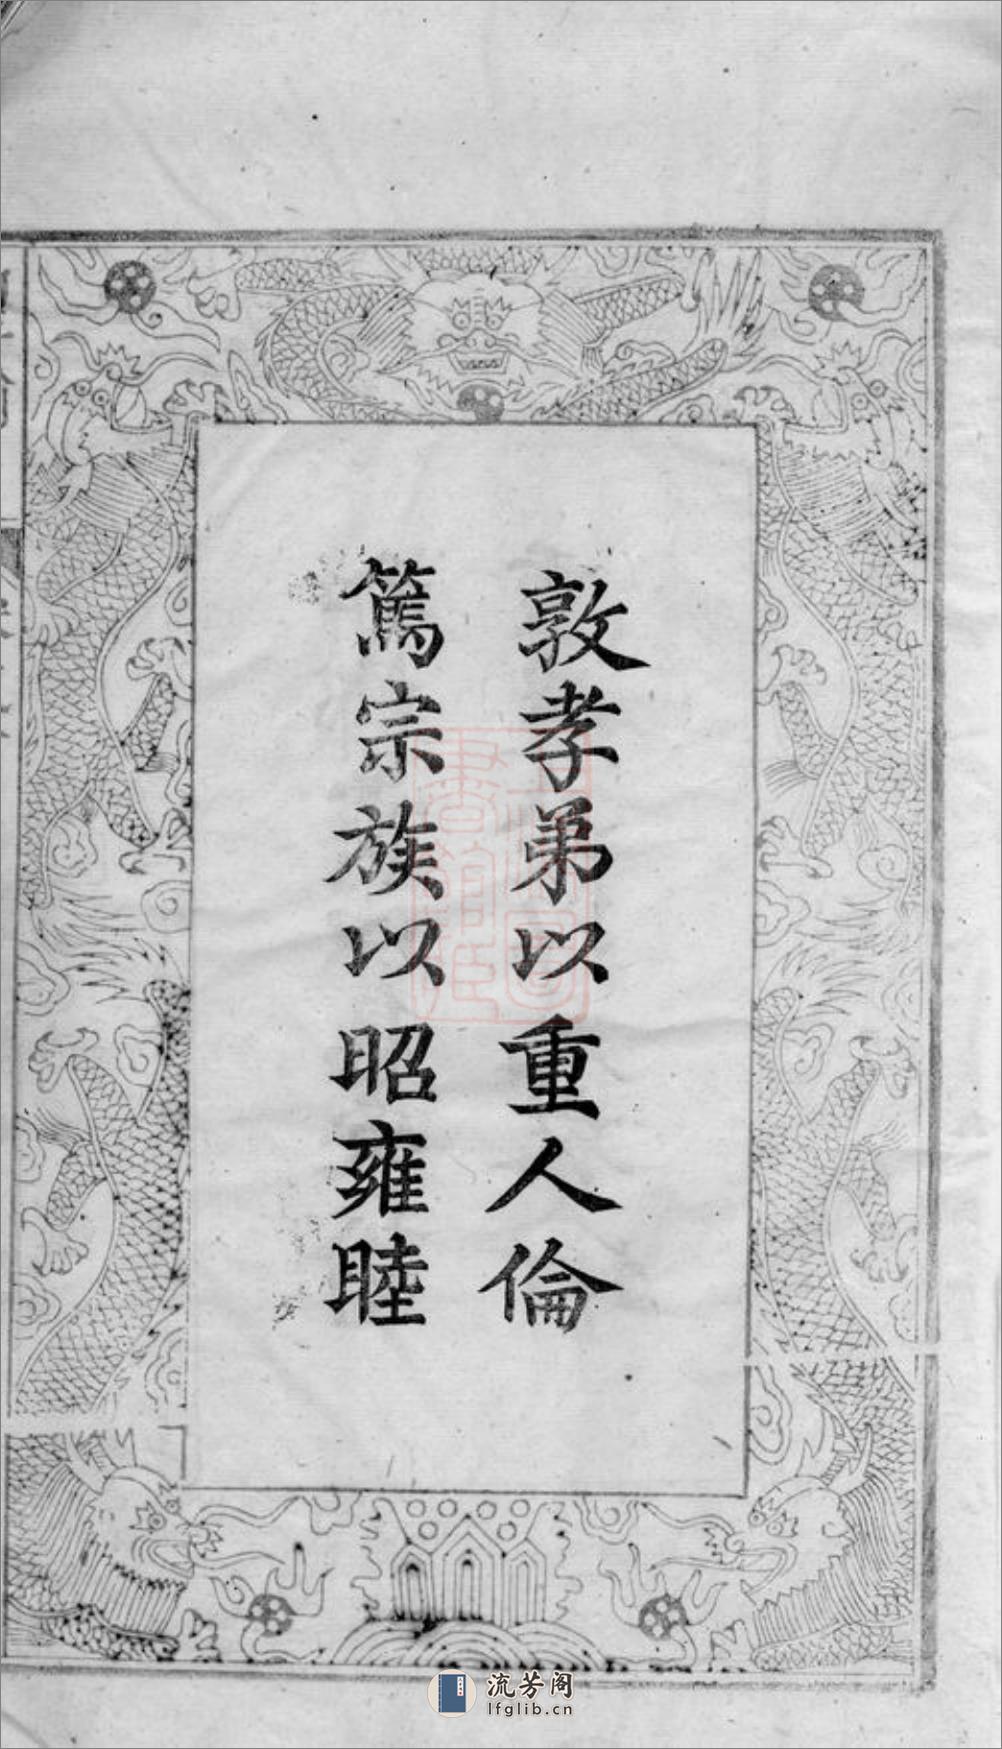 敦孝弟以重人倫
篤宗族以昭雍睦
流芳阁
lfglib.cn